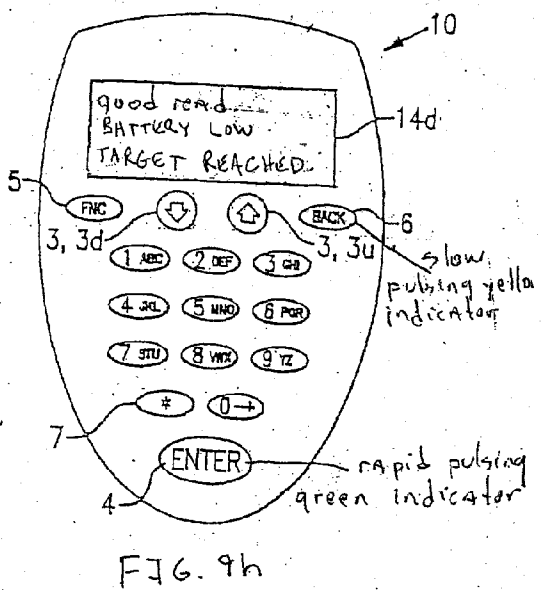 10
good read
BATTERY LOW
TARGET REACHED
14d
5
FNC
BACK
6
3, 3d
3, 3u
slow
pulsing yello
indicator
1 ABC 2 DEF 3 GHI
4 JKL 5 MNO 6 PQR
7 STU 8 VWX 9 YZ
7
*
0→
4
ENTER
rapid pulsing
green indicator
FIG. 9h